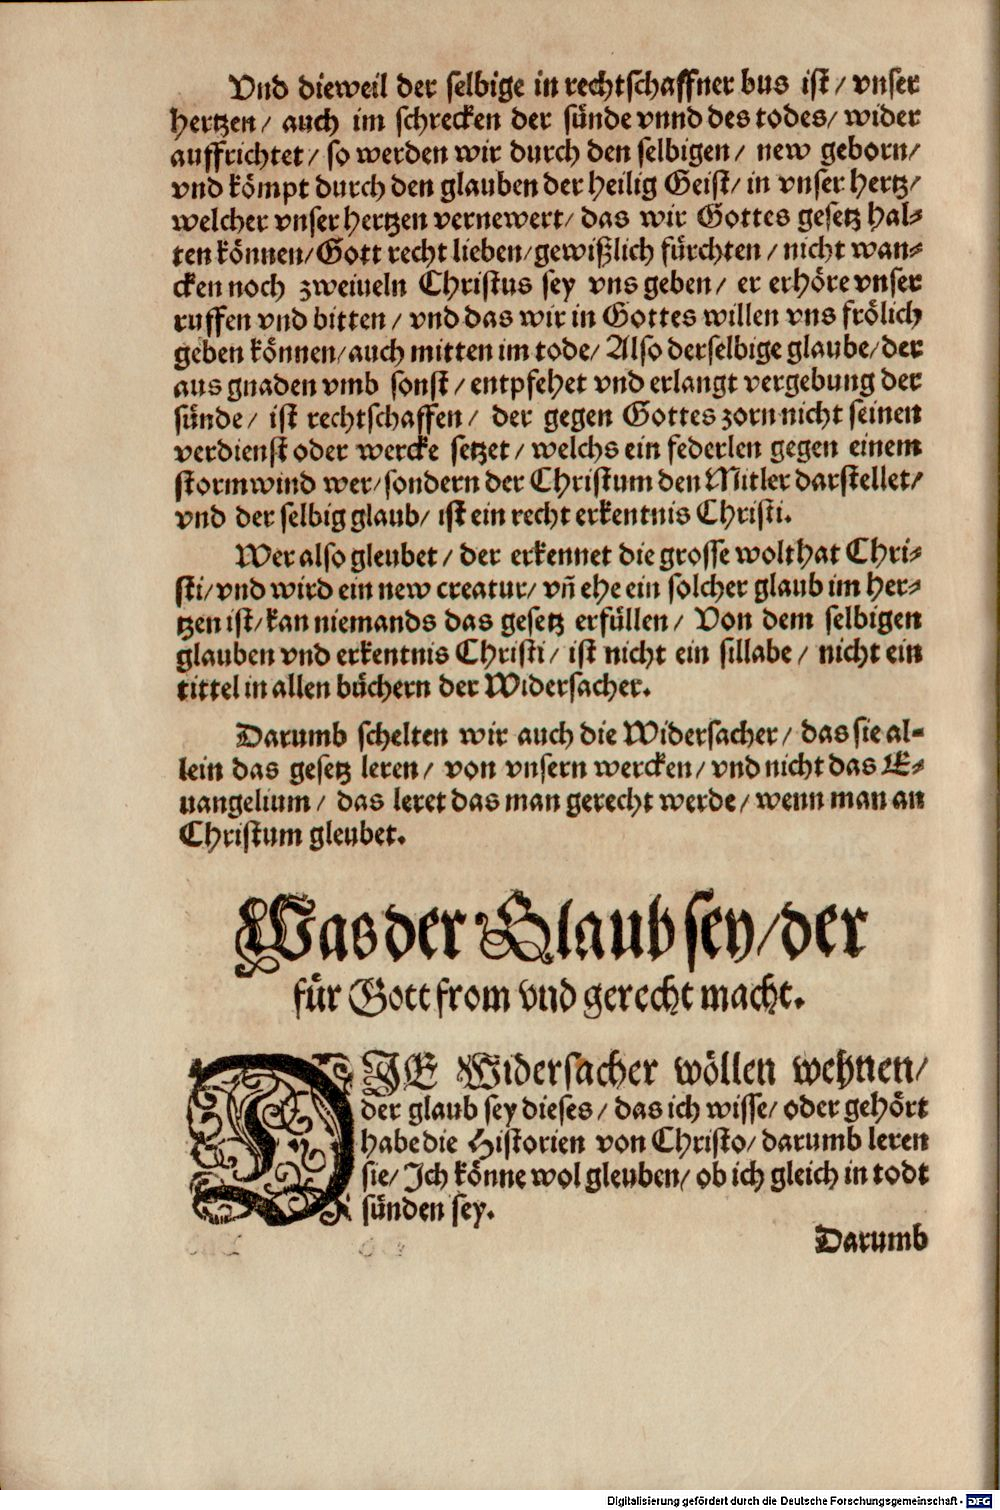 Vnd dieweil der selbige in rechtschaffner bus ist / vnser
hertzen / auch im schrecken der sünde vnnd des todes / wider
auffrichtet / so werden wir durch den selbigen / new geborn /
vnd kömpt durch den glauben der heilig Geist / in vnser hertz /
welcher vnser hertzen vernewert / das wir Gottes gesetz hal⸗
ten können / Gott recht lieben / gewißlich fürchten / nicht wan⸗
cken noch zweiueln Christus sey vns geben / er erhöre vnser
ruffen vnd bitten / vnd das wir in Gottes willen vns frölich
geben können / auch mitten im tode / Also derselbige glaube / der
aus gnaden vmb sonst / entpfehet vnd erlangt vergebung der
sünde / ist rechtschaffen / der gegen Gottes zorn nicht seinen
verdienst oder wercke setzet / welchs ein federlen gegen einem
stormwind wer / sondern der Christum den Mitler darstellet /
vnd der selbig glaub / ist ein recht erkentnis Christi.
Wer also gleubet / der erkennet die grosse wolthat Chri⸗
sti / vnd wird ein new creatur / vñ ehe ein solcher glaub im her⸗
tzen ist / kan niemands das gesetz erfüllen / Von dem selbigen
glauben vnd erkentnis Christi / ist nicht ein sillabe / nicht ein
tittel in allen büchern der Widersacher.
Darumb schelten wir auch die Widersacher / das sie al⸗
lein das gesetz leren / von vnsern wercken / vnd nicht das E⸗
uangelium / das leret das man gerecht werde / wenn man an
Christum gleubet.
Was der Glaub sey / der
für Gott from vnd gerecht macht.
DIE Widersacher wöllen wehnen /
der glaub sey dieses / das ich wisse / oder gehört
habe die Historien von Christo / darumb leren
sie / Ich könne wol gleuben / ob ich gleich in todt
sünden sey.
Darumb
Digitalisierung gefördert durch die Deutsche Forschungsgemeinschaft - DFG